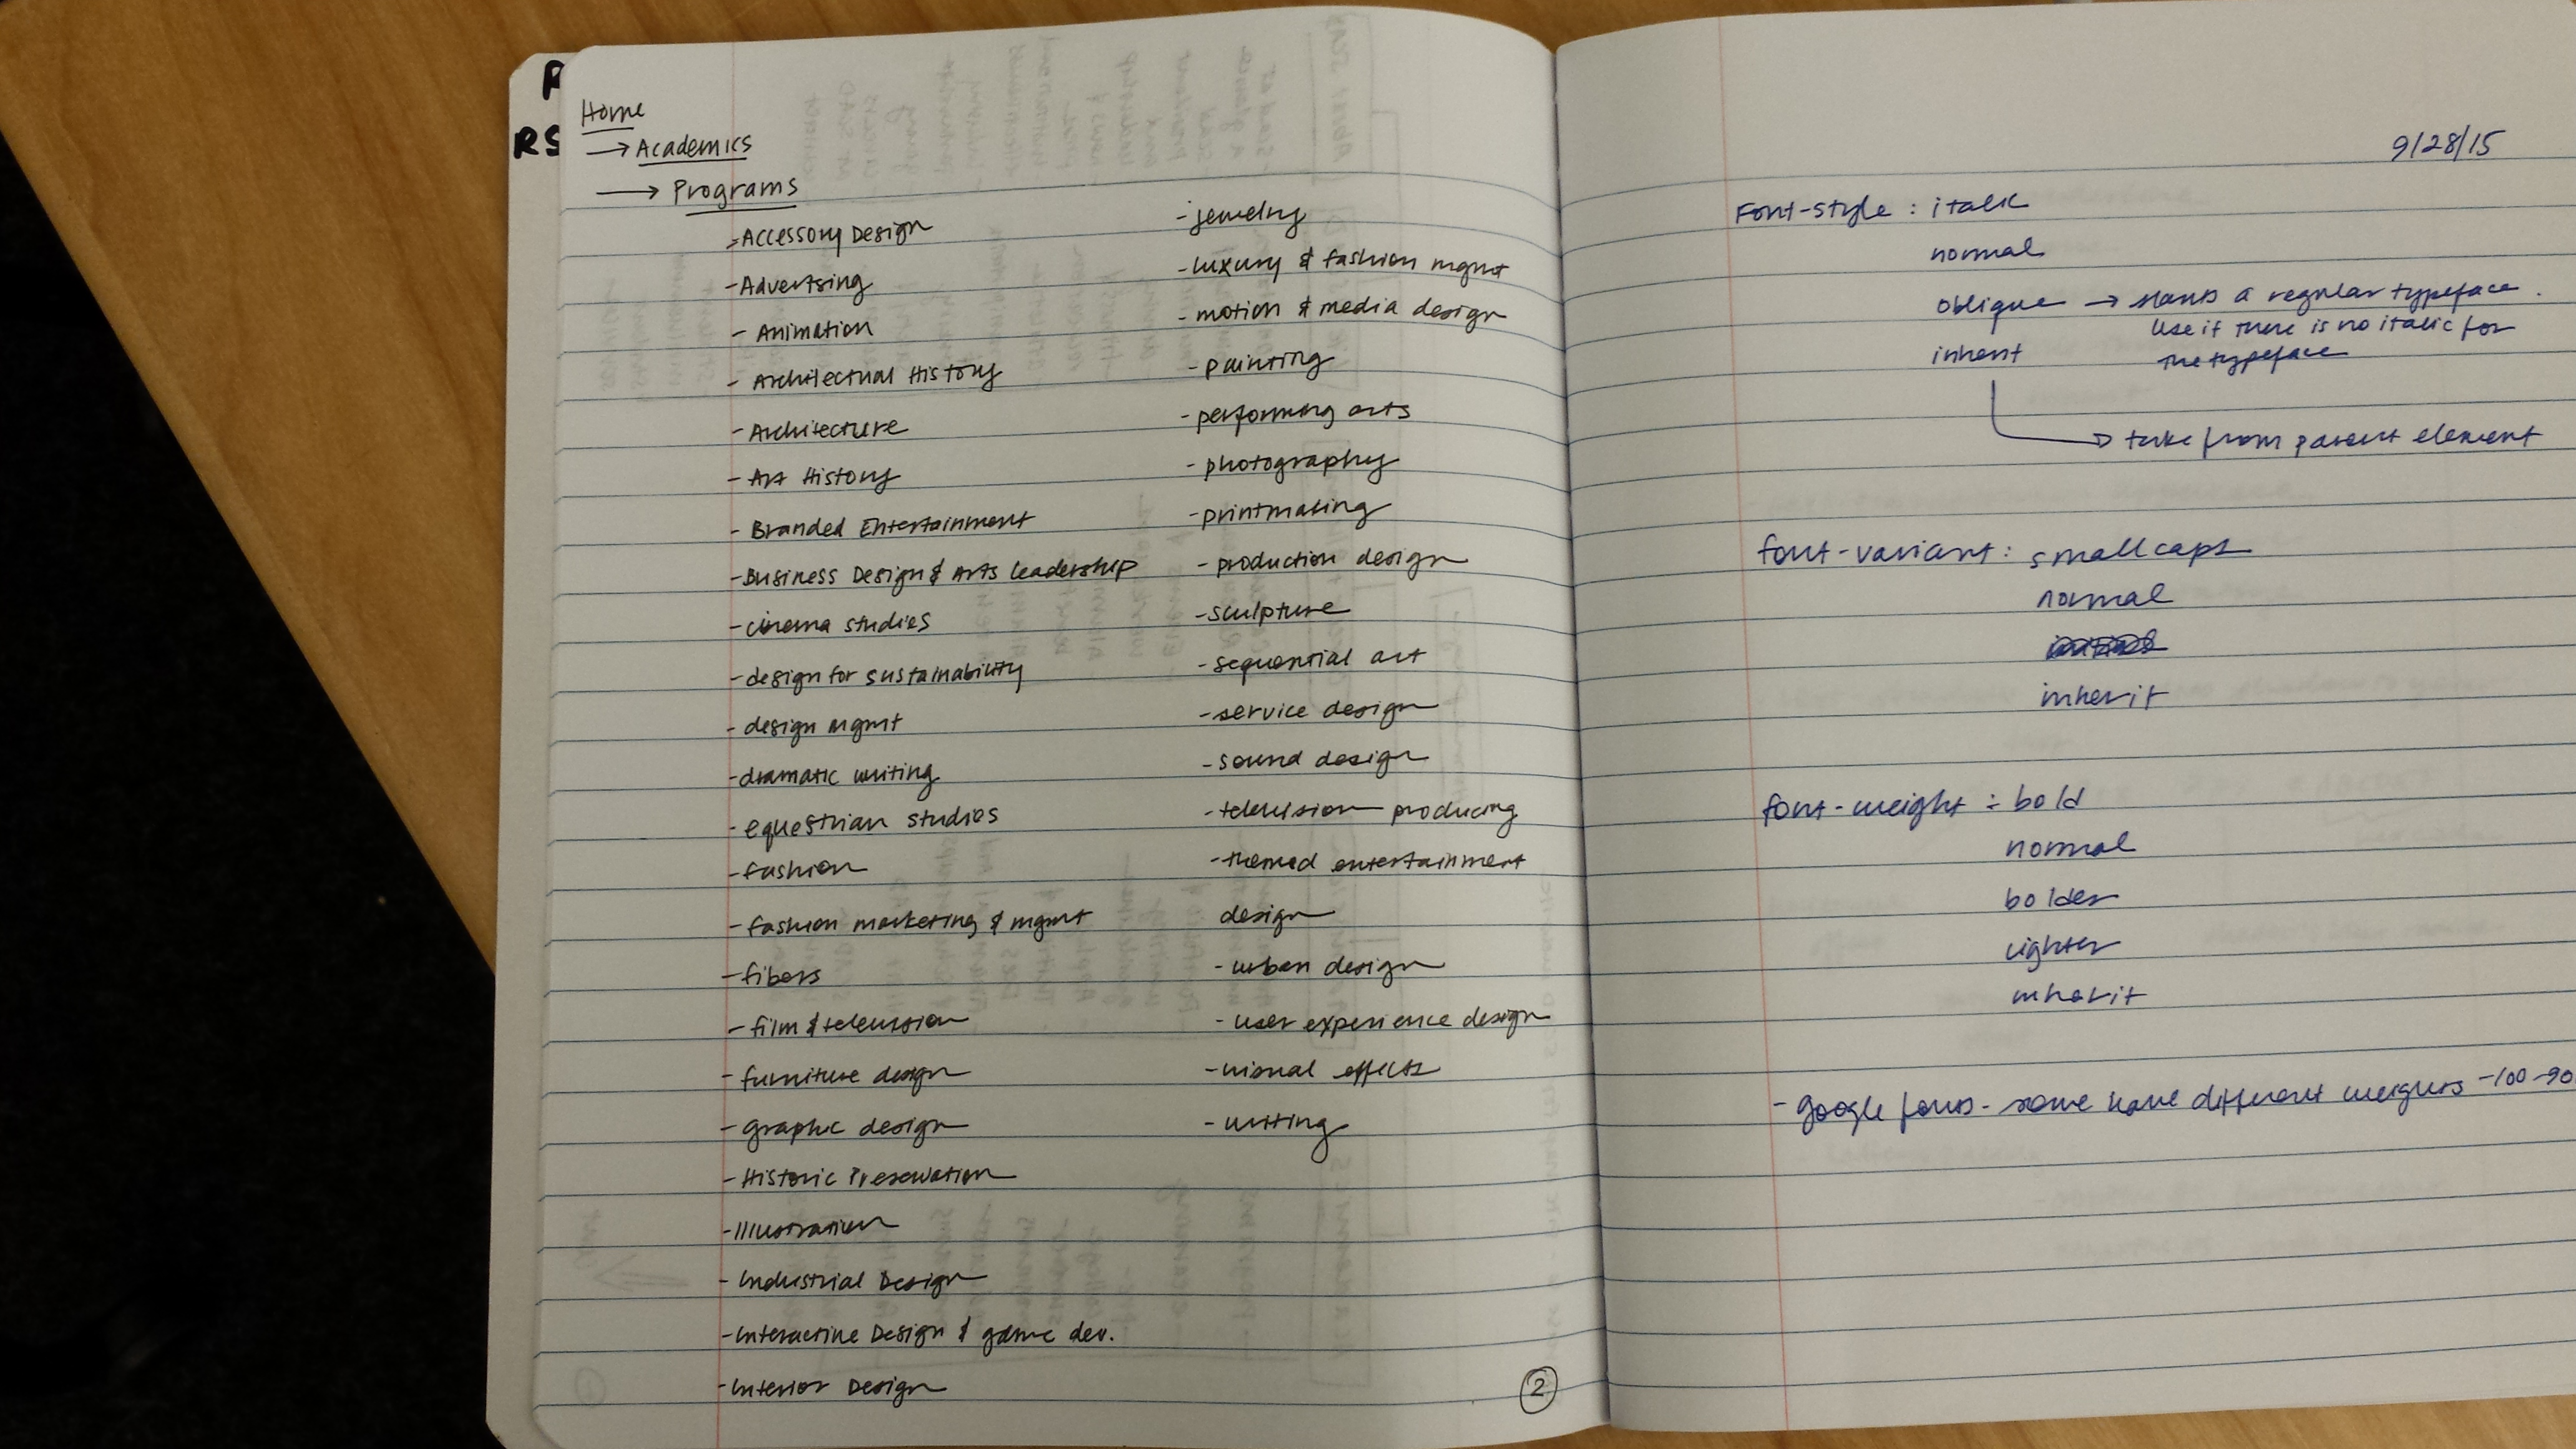 R
RS
Home
→ Academics
→ Programs
- Accessory Design
- Advertsing
- Animation
- Architectual History
- Architecture
- Art History
- Branded Entertainment
- Business Design & Arts leadership
- cinema studies
- design for sustainability
- design mgmt
- dramatic writing
- equestrian studies
- fashion
- fashion marketing & mgmt
- fibers
- film & television
- furniture design
- graphic design
- Historic Preservation
- Illustration
- Industrial Design
- Interactive Design & game dev.
- Interior Design
- jewelry
- luxury & fashion mgmt
- motion & media design
- painting
- performing arts
- photography
- printmaking
- production design
- sculpture
- sequential art
- service design
- sound design
- television producing
- themed entertainment
design
- urban design
- user experience design
- visual effects
- writing
2
9/28/15
Font-style : italic
normal
oblique → slants a regular typeface.
Use if there is no italic for
the typeface
inherit
→ take from parent element
font-variant: smallcaps
normal
inherit
font-weight : bold
normal
bolder
lighter
inherit
- google fonts - some have different weights -100-90